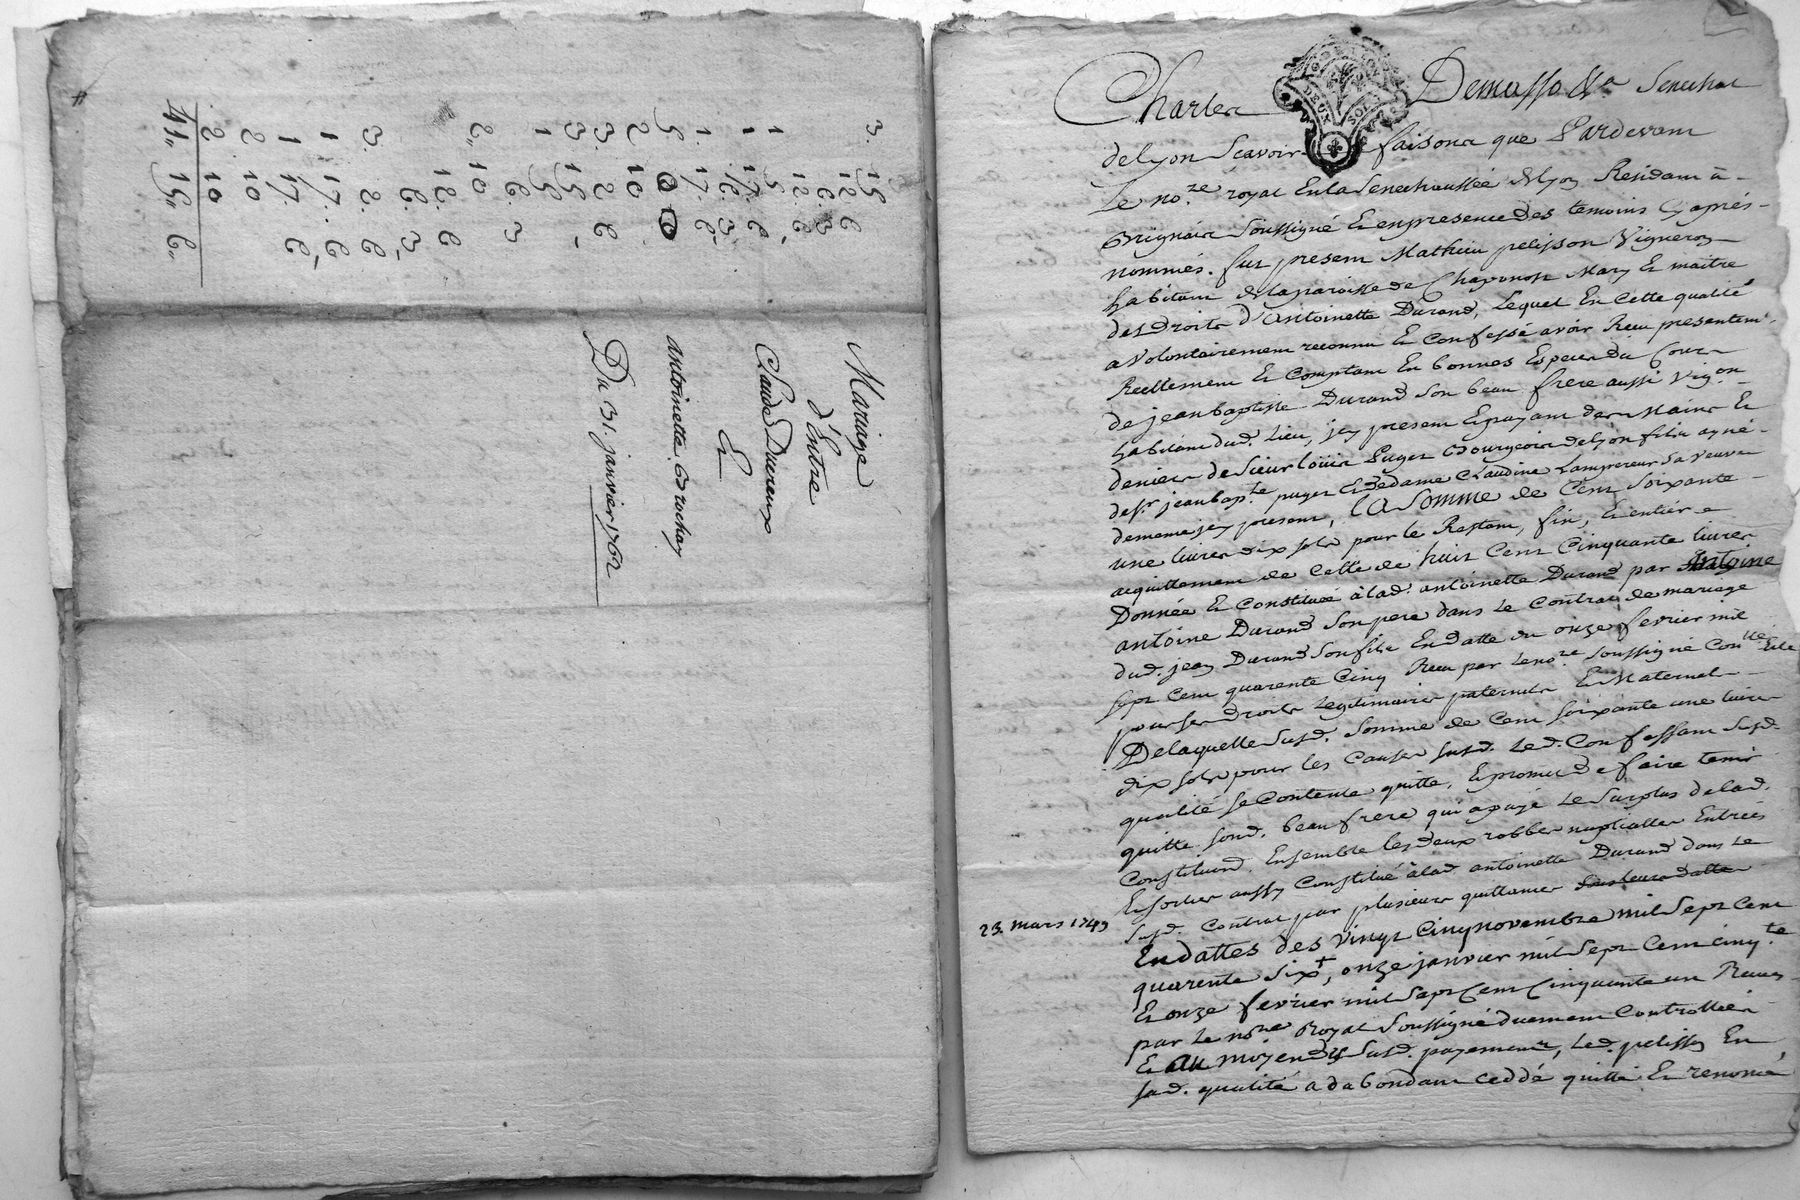 3. 15
12. 6
6. 3
12. 6
1 5
1. 17. 6
6. 3.
1. 17. 6
5 0 0
2 10
3. 2 6
3 15
1 5
6. 3
2 10
12. 6
6. 3.
3. 2. 6
1 17. 6
1 17. 6
2. 10
2. 10
41. 15. 6.
Mariage
d'Entre
Claude Dureux
Et
antoinette Brochay
Du 31. janvier 1762
Charles Demasso &a Senechal
GEN LYON DEUX SOLS
de Lyon Scavoir faisons que Pardevant
Le nore royal En la Senechaussée de Lyon Residant à
Brignais Soussigné Et en presence des temoins Cy après
nommés. fut present Mathieu pelisson Vigneron
habitant de la paroisse de Chaponost Mary Et maitre
des Droits d'Antoinette Durand, Lequel En Cette qualité
a Volontairement reconnu Et Confessé avoir Receu presentemt.
Reellement Et Comptant En bonnes Especes du Cours
de jean baptiste Durand Son beau frere aussi Vigon
habitant dud. Lieu, jcy present Et payant des Mains Et
deniers de Sieur Louis Puget Bourgeois de Lyon fils ayné
de Sr jean bapte puget Et de dame Claudine Lampereur Sa Veuve
de meme jcy present, La Somme de Cent Soixante
une livres dix sols pour le Restant, fin, Et entier
acquittement de Celle de huit Cent Cinquante livres
Donnée Et Constituée à lad. antoinette Durand par Antoine
antoine Durand Son pere dans Le Contrat de mariage
dud. jean Durand Son fils En datte du onze fevrier mil
Sept Cent quarente Cinq Receu par Le nore Soussigné Conllé
pour Ses Droits Legitimaires paternels Et Maternels
De laquelle Susd. Somme de Cent Soixante une livres
dix Sols pour les Causes Susd. Led. Confessant Susd.
qualité Se Contente quitte, Et promet de faire tenir
quitte Sond. beau frere qui a payé Le Surplus de lad.
Constituon. Ensemble les deux robbes nuptialles Entrées
Et Sorties aussy Constitué à lad. antoinette Durand dans Le
Susd. Contrat par plusieurs quittances Sous leurs dattes
23. mars 1749
En dattes des Vingt Cinq novembre mil Sept Cent
quarente Six+, onze janvier mil Sept Cent Cinqte
Et onze fevrier mil Sept Cent Cinquante un Receues
par Le nore Royal Soussigné duement Controllées
Et au moyen du Susd. payement, Led. pelisson En
Sad. qualité a dabondant ceddé quitté Et renoncé